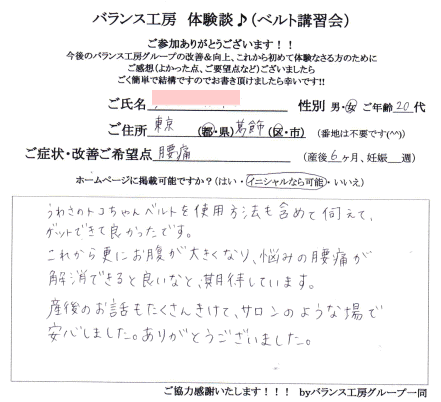 バランス工房 体験談♪(ベルト講習会)
ご参加ありがとうございます！！
今後のバランス工房グループの改善&向上、これから初めて体験なさる方のために
ご感想(よかった点、ご要望点など)ございましたら
ごく簡単で結構ですのでお書き頂けましたら幸いです!!
ご氏名 性別 男・女 ご年齢 20 代
ご住所 東京 (都・県) 葛飾 (区・市) (番地は不要です(^^))
ご症状・改善ご希望点 腰痛 (産後 6 ヶ月、妊娠 週)
ホームページに掲載可能ですか？(はい・イニシャルなら可能・いいえ)
うわさのトコちゃんベルトを使用方法も含めて伺えて、
ゲットできて良かったです。
これから更にお腹が大きくなり、悩みの腰痛が
解消できると良いなと、期待しています。
産後のお話もたくさんきけて、サロンのような場で
安心しました。ありがとうございました。
ご協力感謝いたします！！！ byバランス工房グループ一同